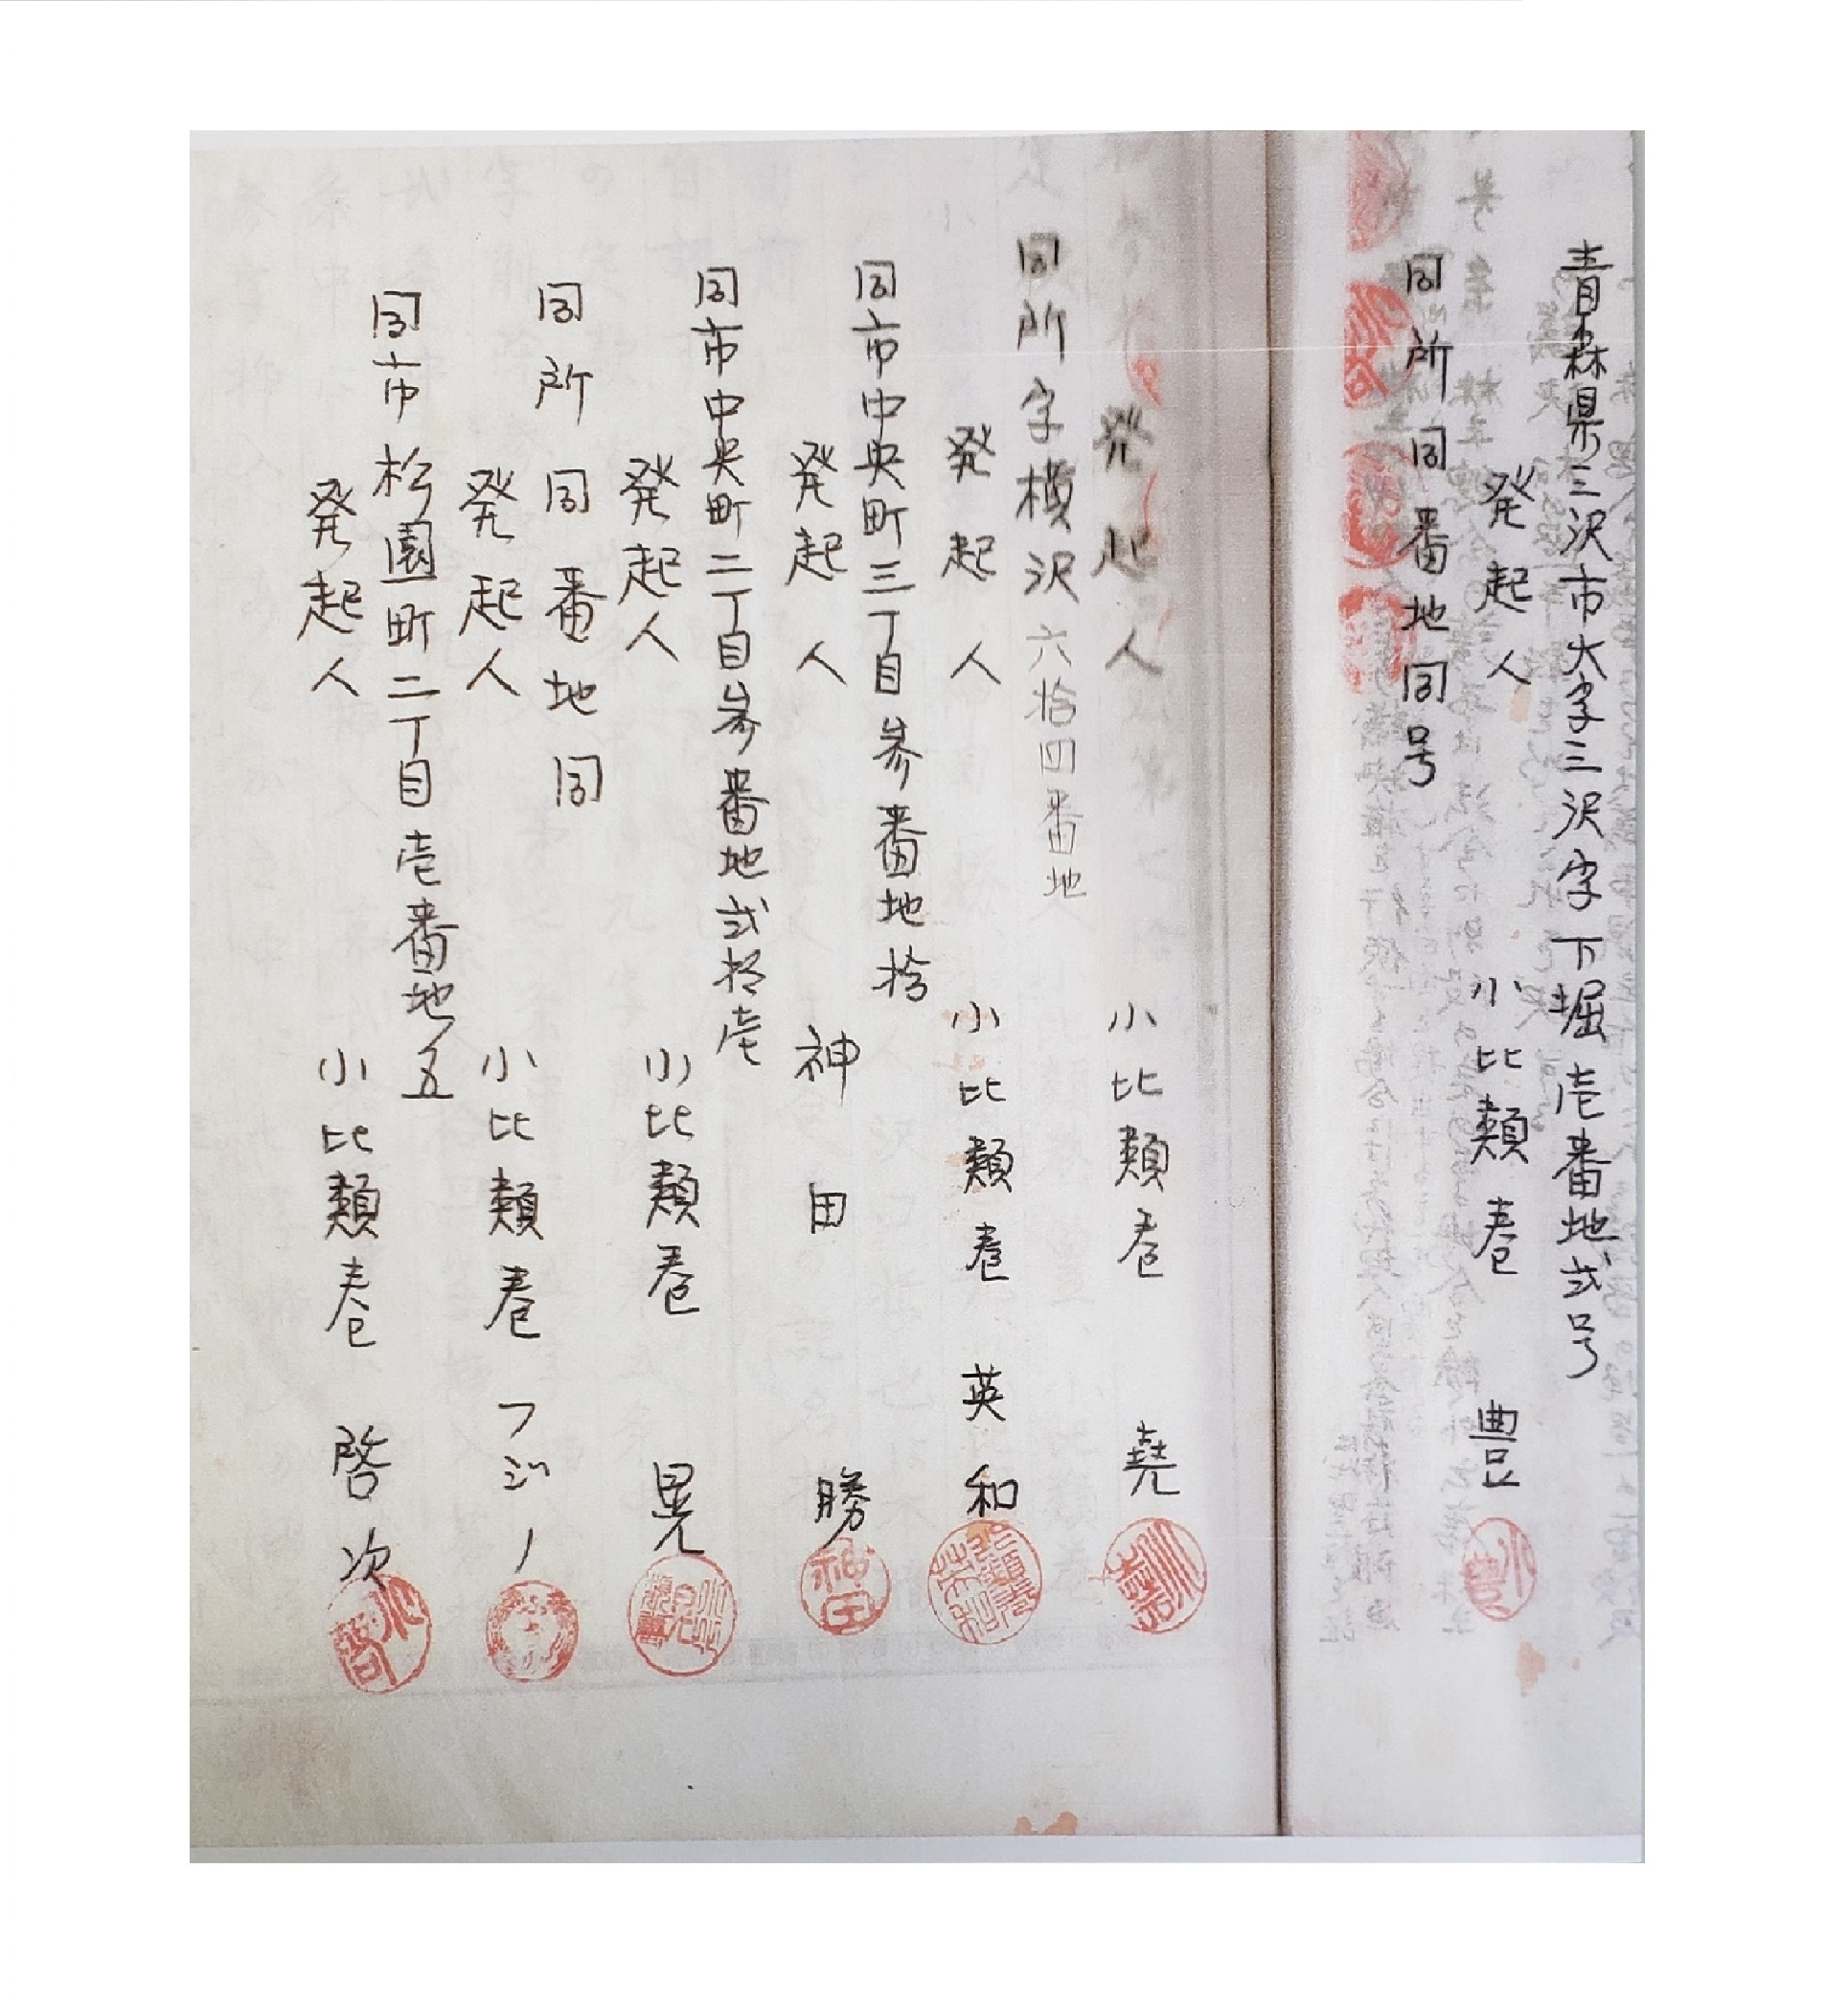 青森県三沢市大字三沢字下堀壱番地弐号
発起人 小比類巻 豊
同所同番地同号
発起人 小比類巻 堯
同所字横沢六拾四番地
発起人 小比類巻 英和
同市中央町三丁目参番地拾
発起人 神田 勝
同市中央町二丁目参番地弐拾壱
発起人 小比類巻 晃
同所同番地同
発起人 小比類巻 フジノ
同市松園町二丁目壱番地五
発起人 小比類巻 啓次
神田